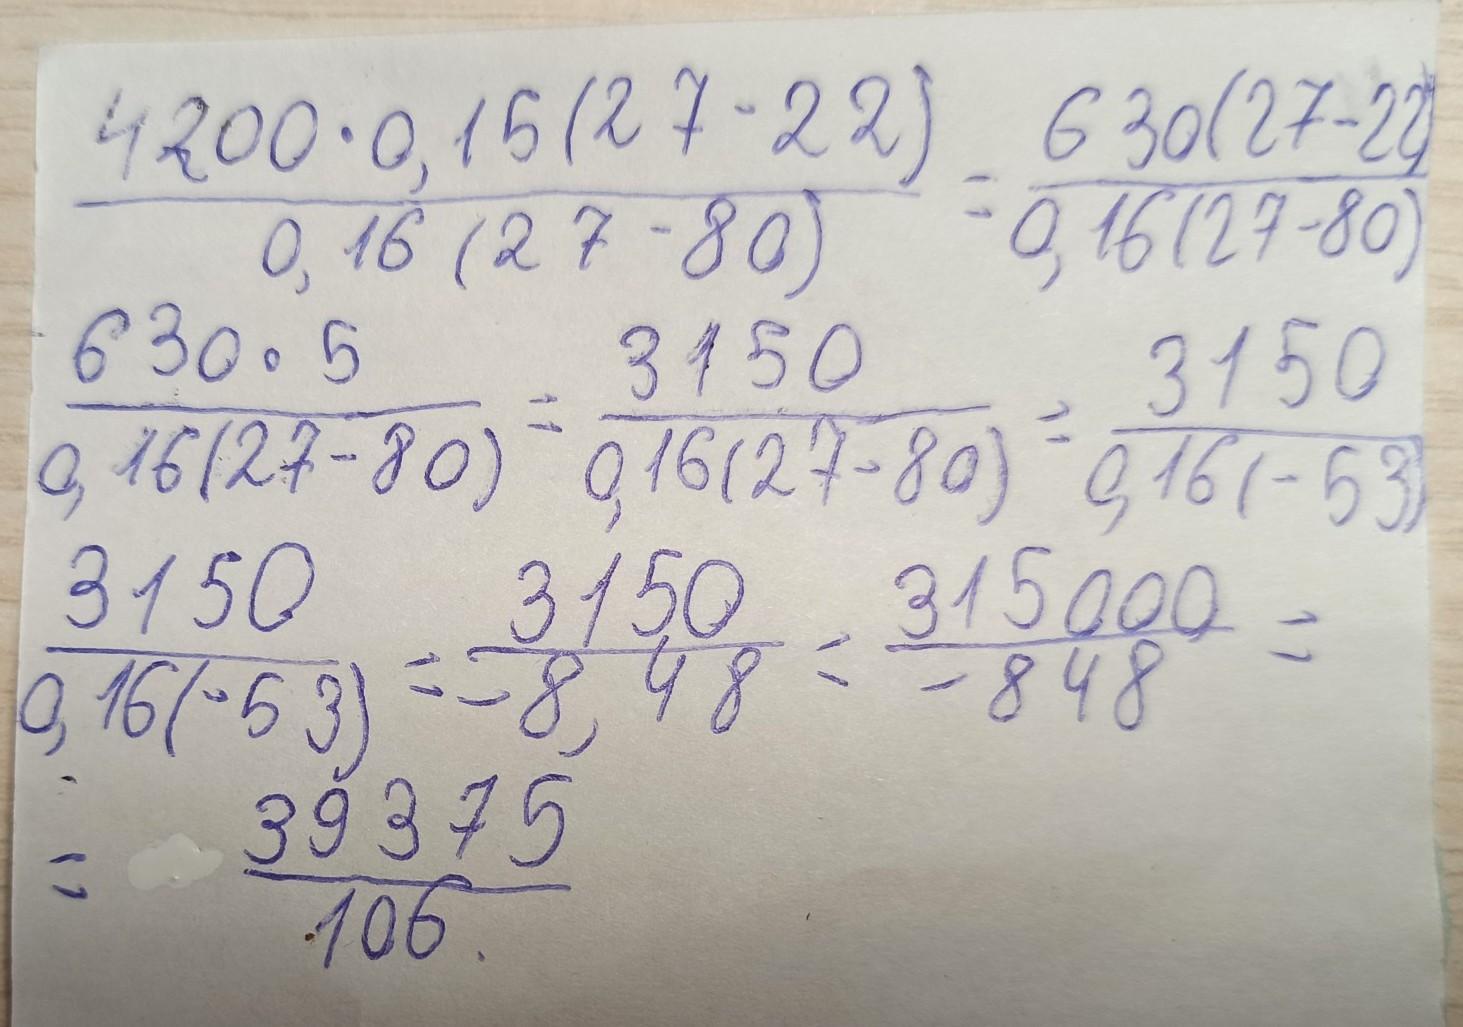 4200·0,15(27-22)/0,16(27-80) = 630(27-22)/0,16(27-80)
630·5/0,16(27-80) = 3150/0,16(27-80) = 3150/0,16(-53)
3150/0,16(-53) = 3150/-8,48 = 315000/-848 =
= 39375/106.